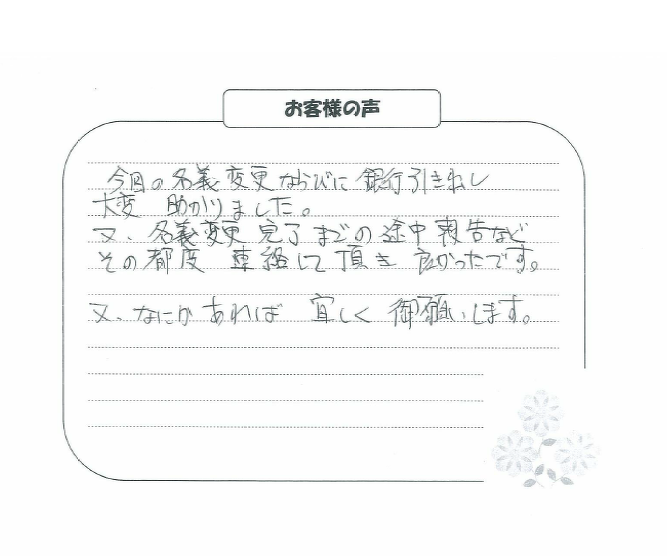 お客様の声
今回の名義変更ならびに銀行引きおとし
大変 助かりました。
又、名義変更 完了までの途中報告など
その都度 連絡して頂き 良かったです。
又、なにかあれば 宜しく 御願いします。